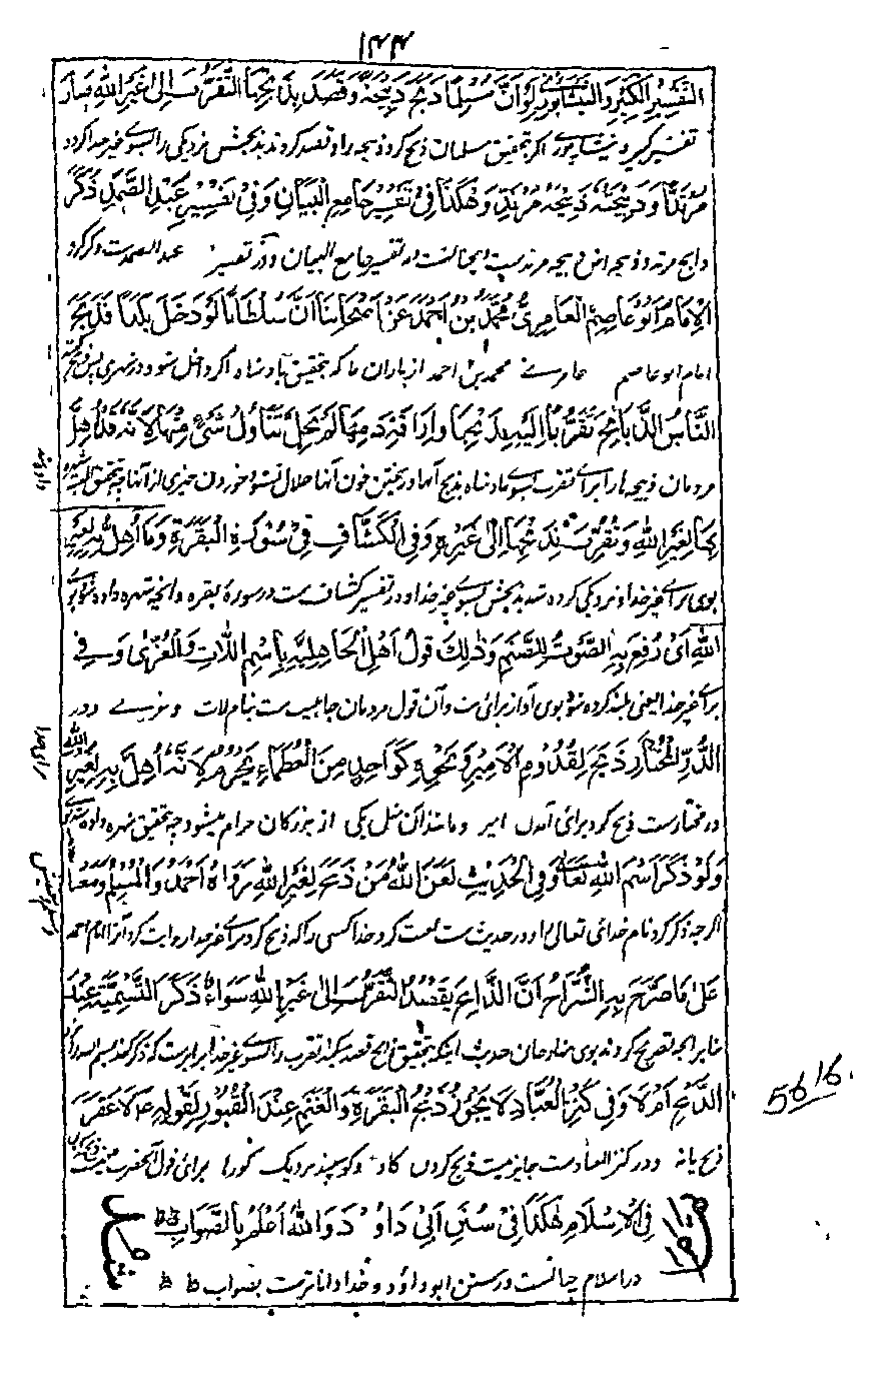 ۱۴۴
التَّفْسِيْرِ الْكَبِيْرِ وَالنَّيْسَابُوْرِ لَوْ اَنَّ مُسْلِمًا ذَبَحَ ذَبِيْحَةً وَقَصَدَ بِذَبْحِهَا التَّقَرُّبَ اِلٰى غَيْرِ اللّٰهِ صَارَ
تفسیر کبیر و نیشاپوری اگر بتحقیق مسلمان ذبح کرد ذبیحہ را و قصد کرد بذبحش نزدیکی را بسوے غیر خدا گردد
مُرْتَدًّا وَذَبِيْحَتُهٗ ذَبِيْحَةُ مُرْتَدٍّ وَهٰكَذَا فِيْ تَفْسِيْرِ جَامِعِ الْبَيَانِ وَفِيْ تَفْسِيْرِ عَبْدِ الصَّمَدِ ذَكَرَ
ذابح مرتد و ذبیحہ اش ذبیحہ مرتد ست اینجا نست در تفسیر جامع البیان و در تفسیر عبد الصمدست ذکر کرد
الْاِمَامُ اَبُوْ عَاصِمٍ الْعَامِرِيُّ مُحَمَّدُ بْنُ اَحْمَدَ عَنْ اَصْحَابِنَا اَنَّ سُلْطَانًا لَوْ دَخَلَ بَلَدًا فَذَبَحَ
امام ابو عاصم عامرے محمد بن احمد از یاران ما کہ بتحقیق بادشاہ اگر داخل شود در شہری پس ذبح کردند
النَّاسُ الذَّبَائِحَ تَقَرُّبًا اِلَيْهِ بِذَبْحِهَا وَاِرَاقَةِ دَمِهَا لَمْ يَحِلَّ تَنَاوُلُ شَيْءٍ مِنْهَا لِاَنَّهٗ قَدْ اُهِلَّ
مردمان ذبیحہ ہا را برائے تقرب بسوے بادشاہ بذبح آنہا و ریختن خون آنہا حلال نشود خوردن چیزی از آنہا چہ بتحقیق
بِهَا لِغَيْرِ اللّٰهِ وَتُقُرِّبَ بِذَبْحِهَا اِلٰى غَيْرِهٖ وَفِي الْكَشَّافِ فِيْ سُوْرَةِ الْبَقَرَةِ وَمَا اُهِلَّ بِهٖ لِغَيْرِ
بوی برائے غیر خدا و نزدیکی کردہ شد بذبحش بسوے غیر خدا و در تفسیر کشاف ست در سورۂ بقرہ و انچہ شہرہ دادہ شود بوی
اللّٰهِ اَيْ رُفِعَ بِهِ الصَّوْتُ لِلصَّنَمِ وَذٰلِكَ قَوْلُ اَهْلِ الْجَاهِلِيَّةِ بِاسْمِ اللَّاتِ وَالْعُزّٰى وَفِي
برائے غیر خدا یعنی بلند کردہ شود بوی آواز برای بت و آن قول مردمان جاہلیت ست بنام لات و عزے و در
الدُّرِّ الْمُخْتَارِ ذَبَحَ لِقُدُوْمِ الْاَمِيْرِ وَنَحْوِهٖ كَوَاحِدٍ مِنَ الْعُظَمَاءِ يَحْرُمُ لِاَنَّهٗ اُهِلَّ بِهٖ لِغَيْرِ اللّٰهِ
در مختارست ذبح کرد برای آمدن امیر و مانند آن مثل یکی از بزرگان حرام میشود چہ بتحقیق شہرہ دادہ شد
وَلَوْ ذَكَرَ اسْمَ اللّٰهِ تَعَالٰى وَفِي الْحَدِيْثِ لَعَنَ اللّٰهُ مَنْ ذَبَحَ لِغَيْرِ اللّٰهِ رَوَاهُ اَحْمَدُ وَالْمُسْلِمُ وَمَعْنَاهُ
اگرچہ ذکر کرد نام خدای تعالی را و در حدیث ست لعنت کرد خدا کسی را کہ ذبح کرد براے غیر خدا روایت کرد آنرا امام احمد
عَلٰى مَا صَرَّحَ بِهِ الشُّرَّاحُ اَنَّ الذَّابِحَ يَقْصُدُ التَّقَرُّبَ اِلٰى غَيْرِ اللّٰهِ سَوَاءٌ ذَكَرَ التَّسْمِيَةَ عِنْدَ
بنا بر انچہ تصریح کردند بوی شارحان حدیث اینکہ بتحقیق ذابح قصد میکند تقرب را بسوے غیر خدا برابرست کہ ذکر کند بسم اللہ نزدیک
الذَّبْحِ اَمْ لَا وَفِيْ كَنْزِ الْعُبَّادِ لَا يَجُوْزُ ذَبْحُ الْبَقَرَةِ وَالْغَنَمِ عِنْدَ الْقُبُوْرِ لِقَوْلِهٖ ع لَا عَقْرَ
ذبح یا نہ و در کنز العبادست جایز نیست ذبح کردن گاو و گوسپند نزدیک گورہا برای قول آنحضرت نیست
فِي الْاِسْلَامِ هٰكَذَا فِيْ سُنَنِ اَبِيْ دَاوُدَ وَاللّٰهُ اَعْلَمُ بِالصَّوَابِ
در اسلام چنانست در سنن ابو داؤد و خدا داناترست بصواب
5616.